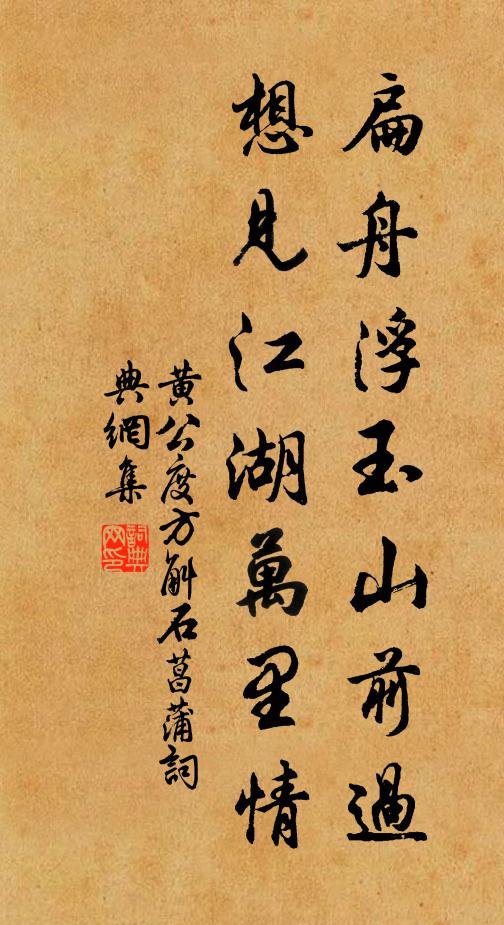 扁舟浮玉山前過
想見江湖萬里情
黃公度方斛石菖蒲詞
典網集
詞典
网印